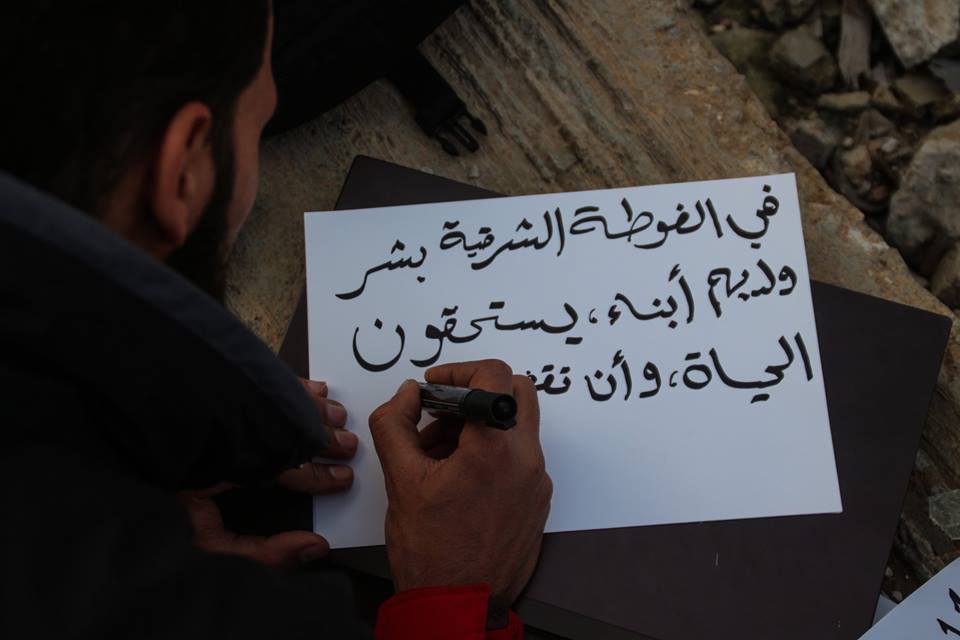 في الغوطة الشرقية بشر
ولديهم أبناء، يستحقون
الحياة، وأن